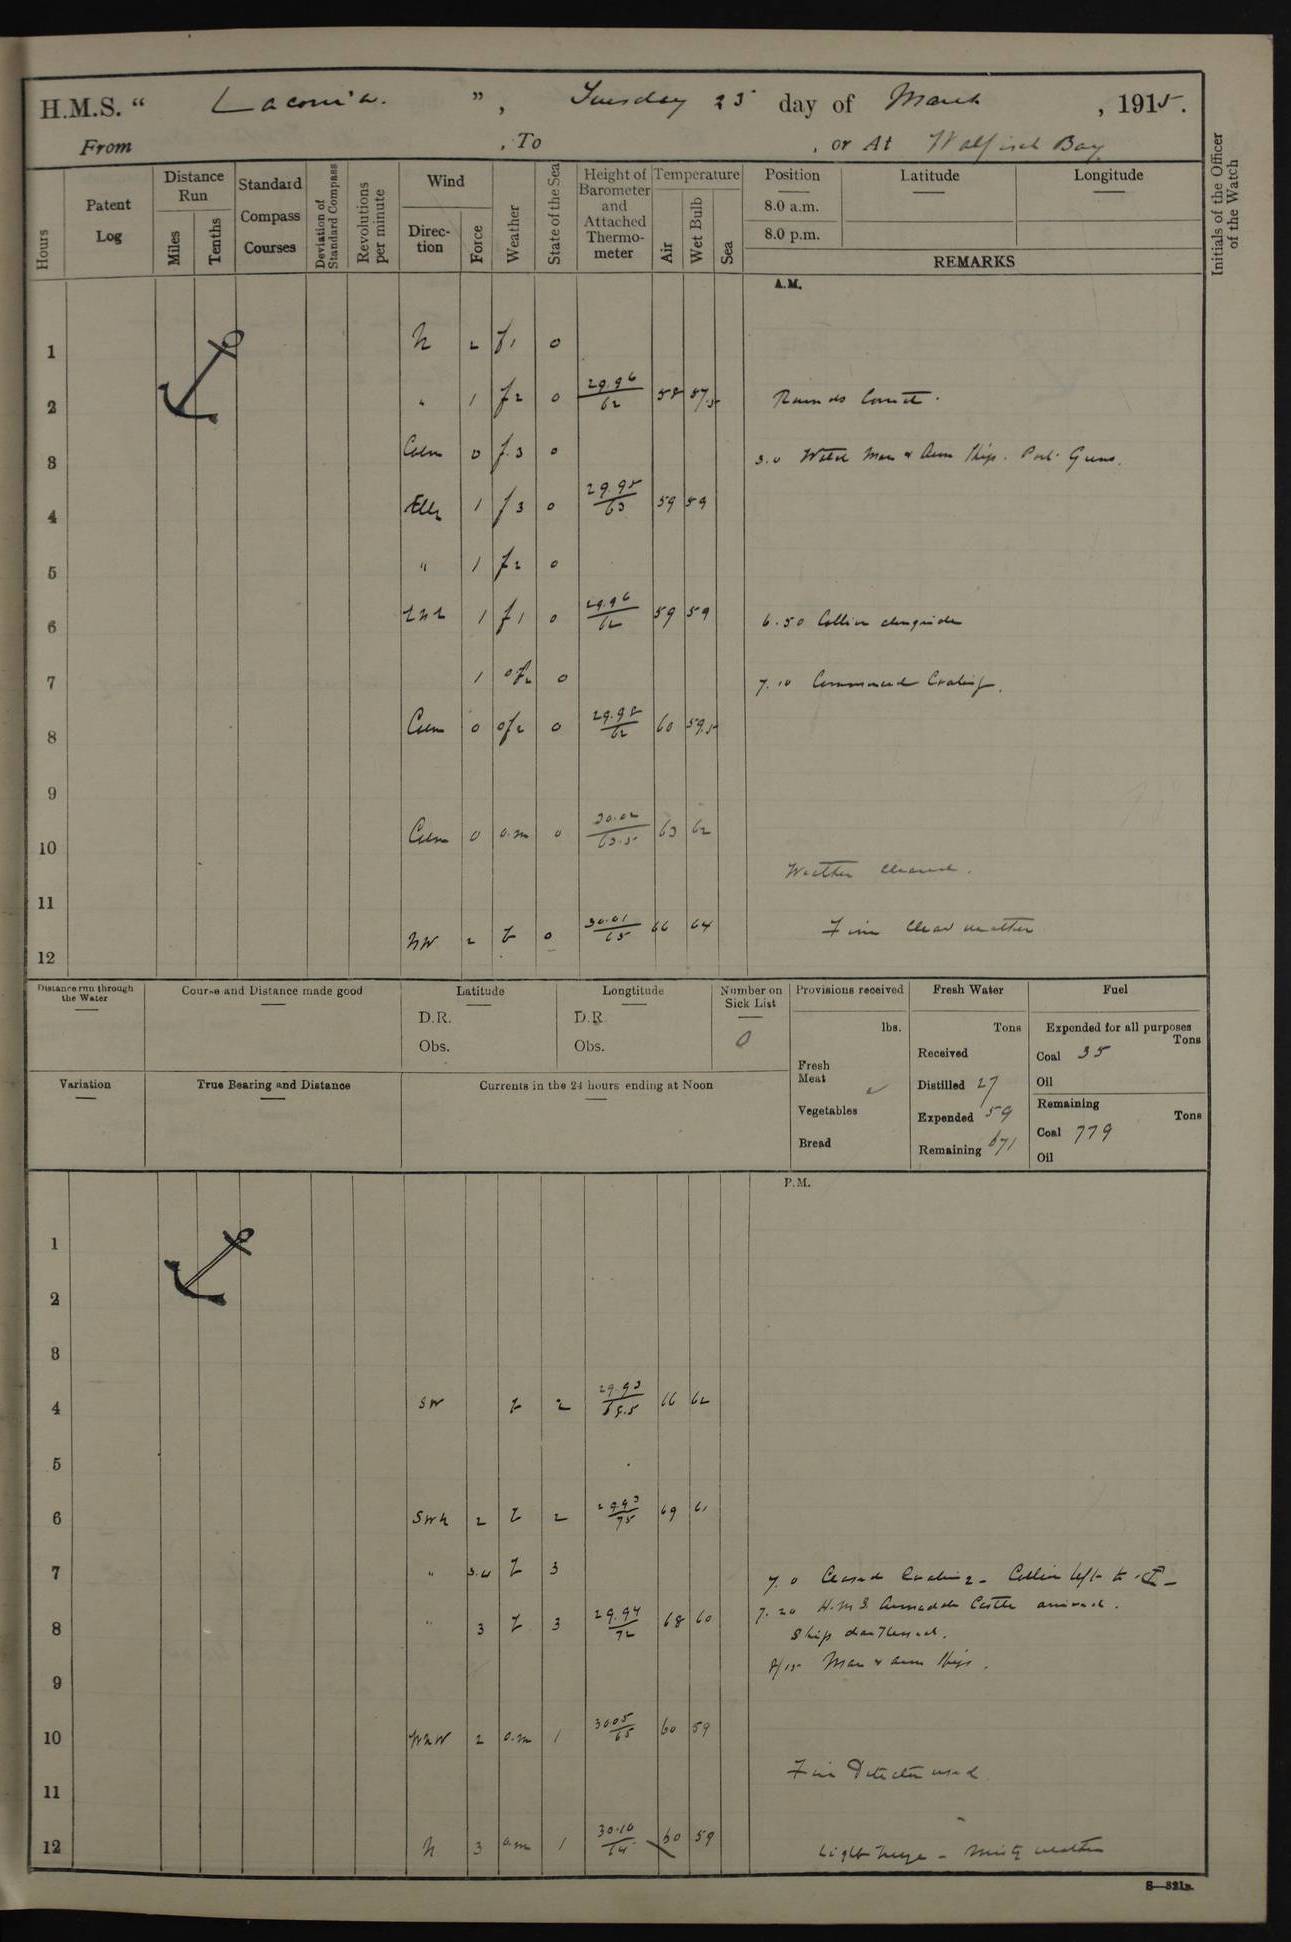 H.M.S. “ Laconia. ”, Tuesday 23 day of March, 1915.
From , To , or At Walfisch Bay
Hours
Patent Log
Distance Run
Miles
Tenths
Standard Compass Courses
Deviation of Standard Compass
Revolutions per minute
Wind
Direction
Force
Weather
State of the Sea
Height of Barometer and Attached Thermometer
Temperature
Air
Wet Bulb
Sea
Position
8.0 a.m.
8.0 p.m.
Latitude
Longitude
REMARKS
Initials of the Officer of the Watch
A.M.
1 N 2 f1 0
2 " 1 f2 0 29.96/62 58 57.5 Rounds Correct.
3 Calm 0 f.3 0 3.0 Watch Man & Arm Ship. Port Guns.
4 1 f3 0 29.95/63 59 59
5 " 1 f2 0
6 1 f1 0 29.96/62 59 59 6.50 Collier alongside
7 1 of2 0 7.10 Commenced Coaling.
8 Calm 0 of2 0 29.98/62 60 59.5
9
10 Calm 0 o.m 0 30.02/63.5 63 62
Weather cleared.
11
12 NW 2 b 0 30.01/65 66 64 Fine clear weather
Distance run through the Water
Course and Distance made good
Latitude
D.R.
Obs.
Longtitude
D.R
Obs.
Number on Sick List
0
Provisions received
lbs.
Fresh Meat
Vegetables
Bread
Fresh Water
Tons
Received
Distilled 27
Expended 59
Remaining 671
Fuel
Expended for all purposes
Tons
Coal 35
Oil
Remaining
Tons
Coal 779
Oil
Variation
True Bearing and Distance
Currents in the 24 hours ending at Noon
P.M.
1
2
3
4 SW b 2 29.93/68.5 66 62
5
6 2 b 2 29.93/75 69 61
7 " 3.4 b 3 7.0 Ceased Coaling - Collier left to
7.20 H.M.S. Armadale Castle arrived.
8 " 3 b 3 29.94/72 68 60 Ship darkened.
8/15 Man & arm Ship.
9
10 NNW 2 o.m 1 30.05/65 60 59
Fire Detector used
11
12 N 3 o.m 1 30.10/64 60 59 Light breeze - Misty weather
S—321a.